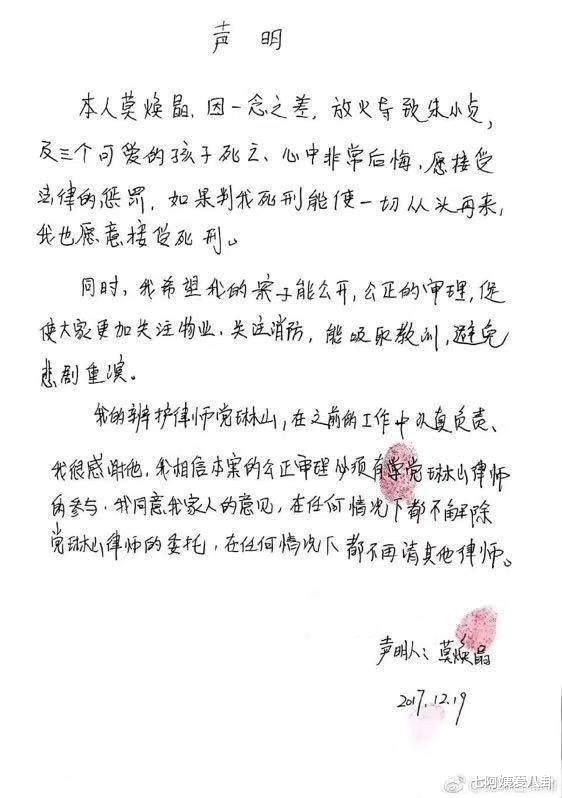 声 明
本人莫焕晶,因一念之差,放火导致朱小贞,
及三个可爱的孩子死亡、心中非常后悔,愿接受
法律的惩罚,如果判我死刑能使一切从头再来,
我也愿意接受死刑。
同时,我希望我的案子能公开,公正的审理,促
使大家更加关注物业、关注消防,能吸取教训,避免
悲剧重演。
我的辩护律师党琳山,在之前的工作中认真负责、
我很感谢他,我相信本案的公正审理必须有党琳山律师
的参与,我同意我家人的意见,在任何情况下都不解除
党琳山律师的委托,在任何情况下都不再请其他律师。
声明人:莫焕晶
2017.12.19
七阿姨爱八卦